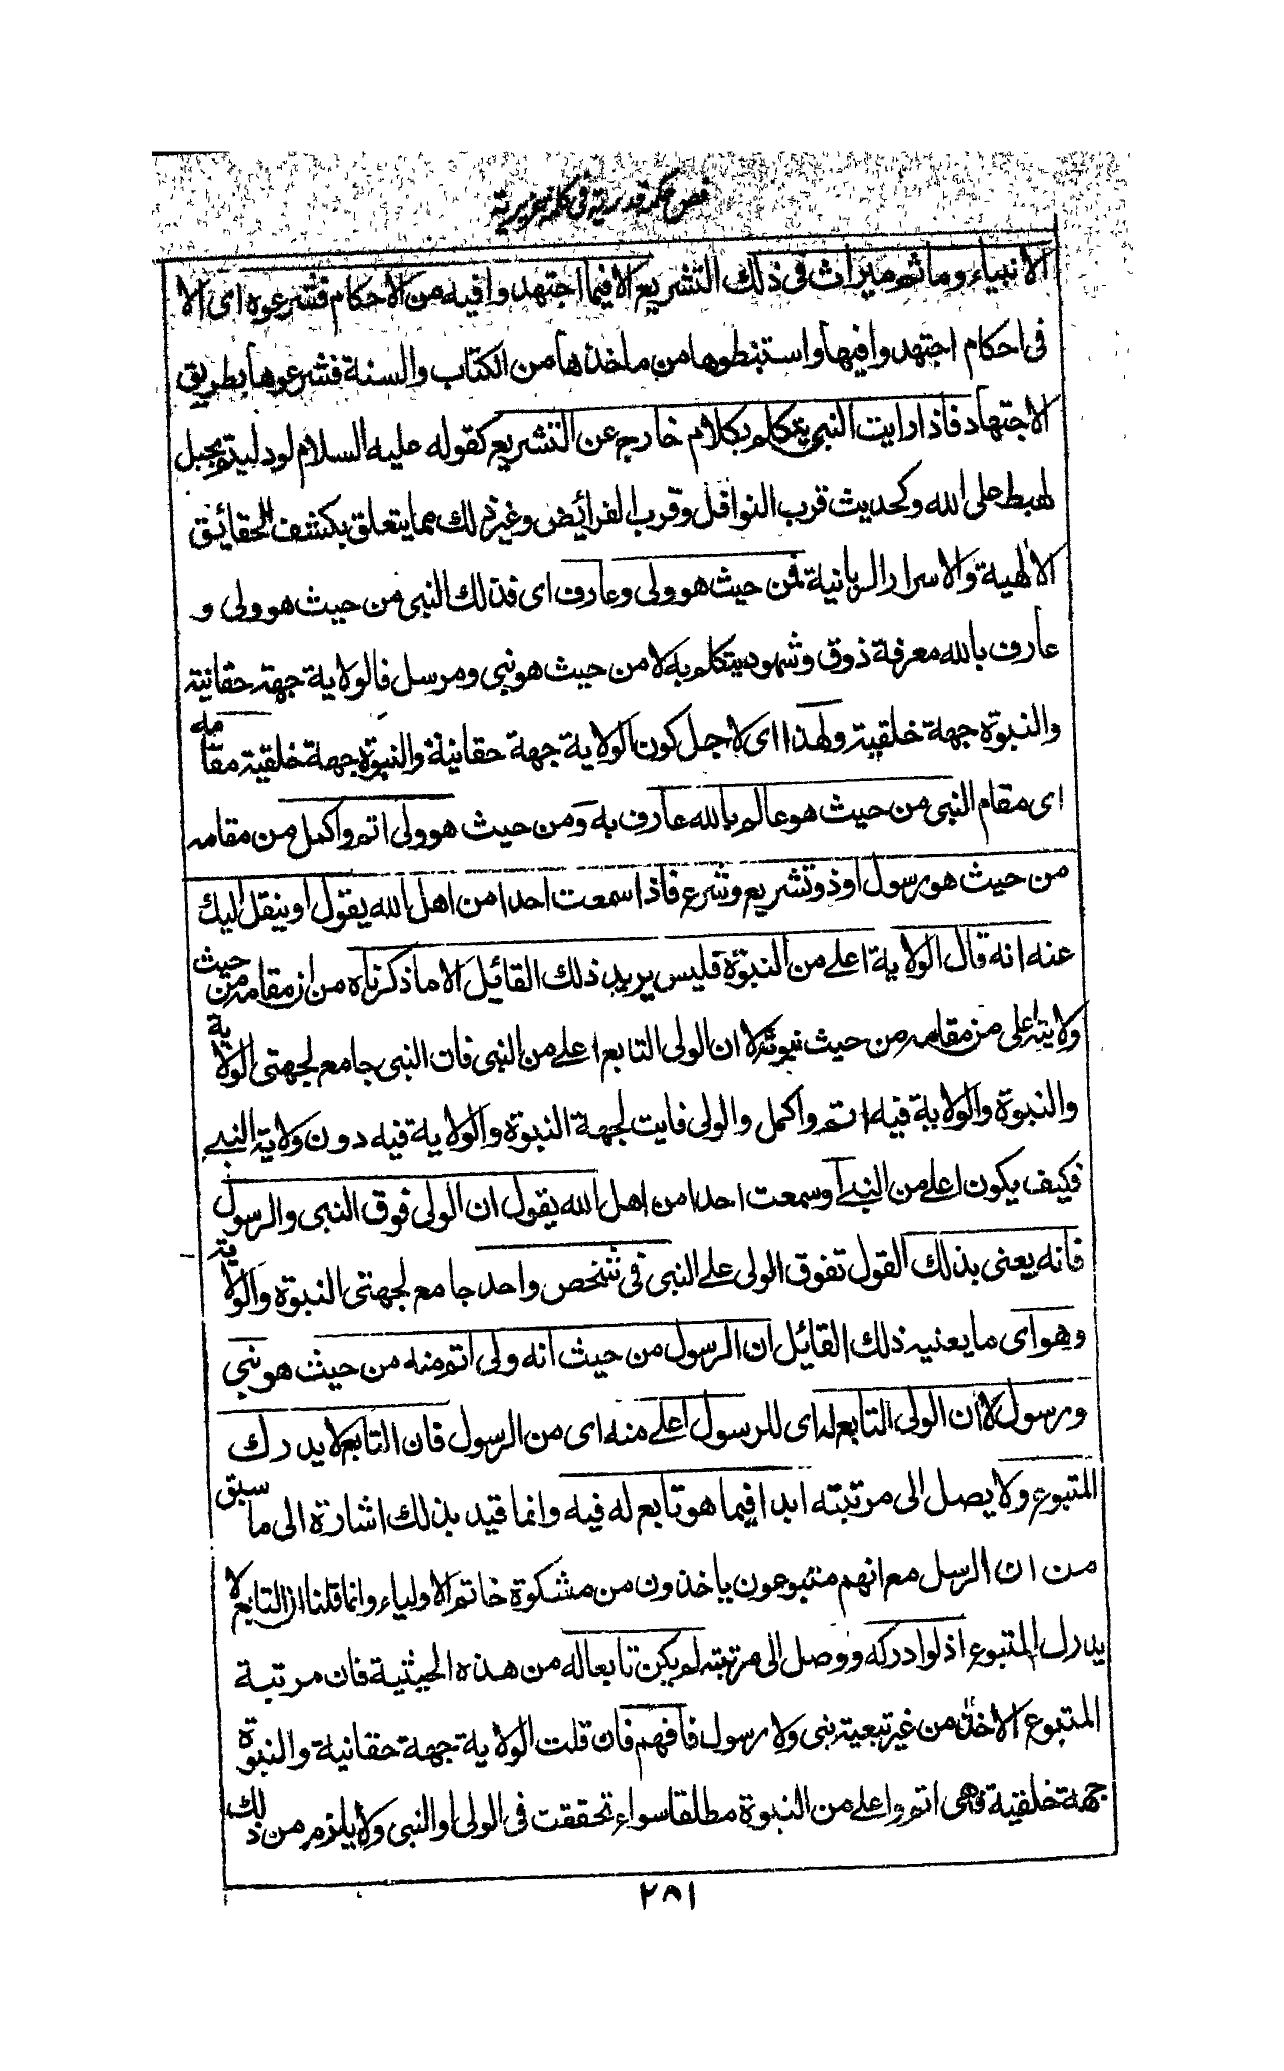 فص حكمة قدرية في كلمة عزيرية
الانبياء وما ثم ميراث في ذلك التشريع الا فيما اجتهدوا فيه من الاحكام فشرعوه اى الا
في احكام اجتهدوا فيها واستنبطوها من ماخذها من الكتاب والسنة فشرعوها بطريق
الاجتهاد فاذا رايت النبى يتكلم بكلام خارج عن التشريع كقوله عليه السلام لو دليتم بحبل
لهبط على الله وكحديث قرب النوافل وقرب الفرائض وغير ذلك مما يتعلق بكشف الحقائق
الالهية والاسرار الربانية فمن حيث هو ولى وعارف اى فذلك النبى من حيث هو ولى و
عارف بالله معرفة ذوق وشهود يتكلم به لا من حيث هو نبى ومرسل فالولاية جهة حقانية
والنبوة جهة خلقية ولهذا اى لاجل كون الولاية جهة حقانية والنبوة جهة خلقية مقامه
اى مقام النبى من حيث هو عالم بالله عارف به ومن حيث هو ولى اتم واكمل من مقامه
من حيث هو رسول او ذو تشريع وشرع فاذا سمعت احدا من اهل الله يقول او ينقل اليك
عنه انه قال الولاية اعلى من النبوة فليس يريد ذلك القائل الا ما ذكرناه من ان مقامه من حيث
ولايته اعلى من مقامه من حيث نبوته لا ان الولى التابع اعلى من النبى فان النبى جامع لجهتى الولاية
والنبوة والولاية فيه اتم واكمل والولى فايت لجهة النبوة والولاية فيه دون ولاية النبى
فكيف يكون اعلى من النبى او سمعت احدا من اهل الله يقول ان الولى فوق النبى والرسول
فانه يعنى بذلك القول تفوق الولى على النبى فى شخص واحد جامع لجهتى النبوة والولاية
وهو اى ما يعنيه ذلك القائل ان الرسول من حيث انه ولى اتم منه من حيث هو نبى
ورسول لا ان الولى التابع له اى للرسول اعلى منه اى من الرسول فان التابع لا يدرك
المتبوع ولا يصل الى مرتبته ابدا فيما هو تابع له فيه وانما قيد بذلك اشارة الى ما سبق
من ان الرسل مع انهم متبوعون ياخذون من مشكوة خاتم الاولياء وانما قلنا ان التابع لا
يدرك المتبوع اذ لو ادركه ووصل الى مرتبته لم يكن تابعا له من هذه الحيثية فان مرتبة
المتبوع الاخذ من غير تبعية نبى ولا رسول فافهم فان قلت الولاية جهة حقانية والنبوة
جهة خلقية فهى اتم واعلى من النبوة مطلقا سواء تحققت فى الولى او النبى ولا يلزم من ذلك
٢٨١